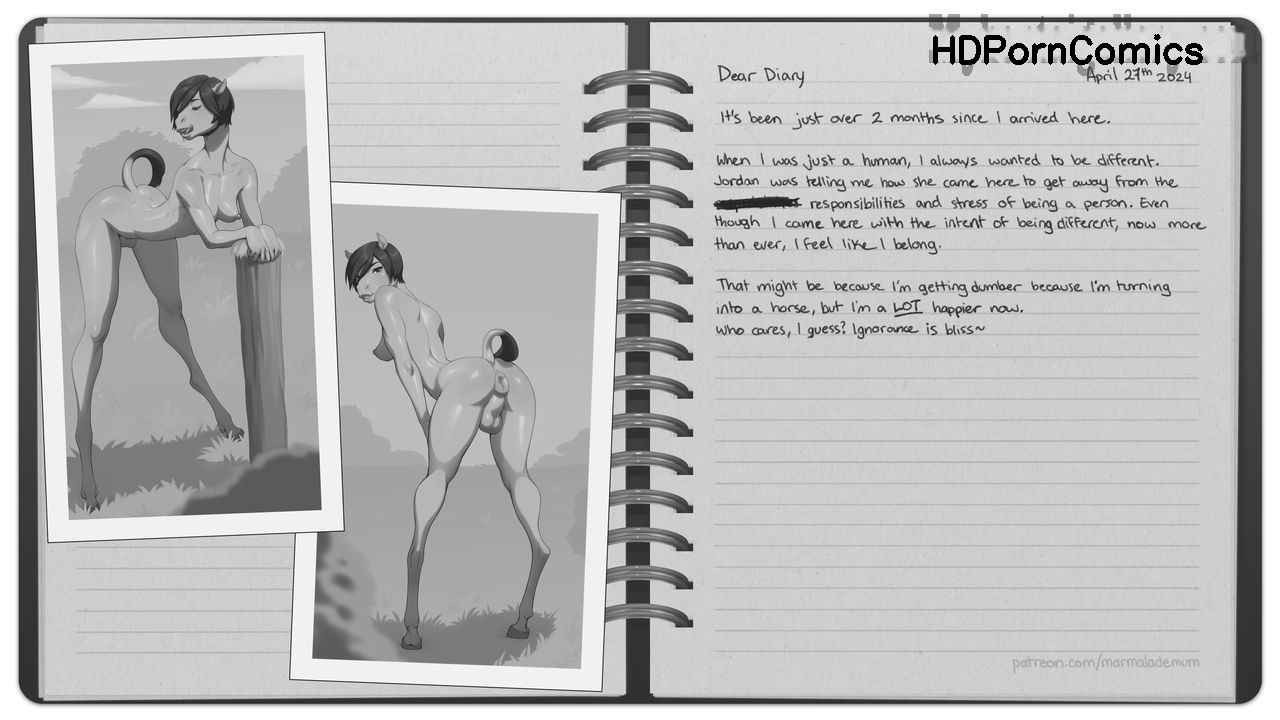 HDPornComics
Dear Diary
April 27th 2024
It's been just over 2 months since I arrived here.
When I was just a human, I always wanted to be different.
Jordan was telling me how she came here to get away from the
responsibilities and stress of being a person. Even
though I came here with the intent of being different, now more
than ever, I feel like I belong.
That might be because I'm getting dumber because I'm turning
into a horse, but I'm a LOT happier now.
Who cares, I guess? Ignorance is bliss~
patreon.com/marmalademum